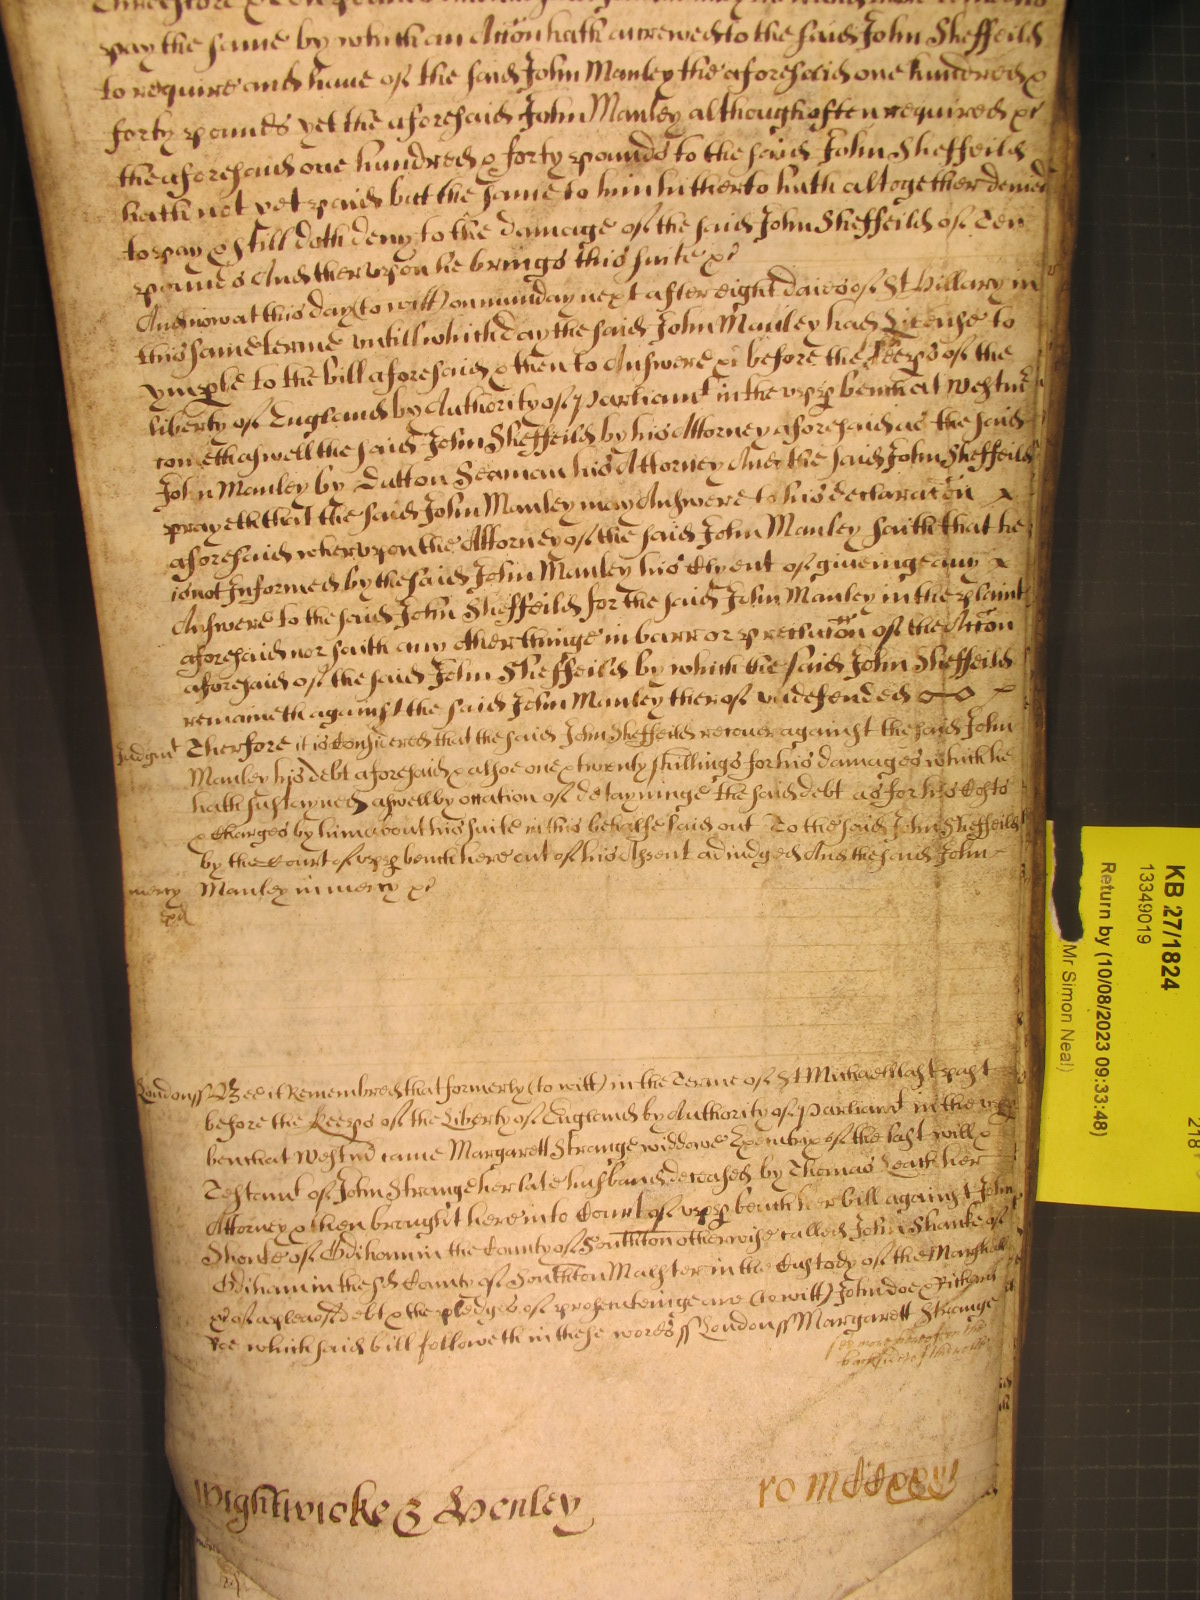 pay the same by which an Accon hath accrewed to the said John Sheffeild
to require and have of the said John Manley the aforesaid one hundred &
forty pounds yet the aforesaid John Manley although often required &c
the aforesaid one hundred & forty pounds to the said John Sheffeild
hath not yet paid but the same to him hitherto hath altogether denied
to pay & still doth deny to the damage of the said John Sheffeild of Ten
pounds And therupon he brings this suite &c
And now at this day (to witt) on munday next after eight daies of St Hillary in
this same terme untill which day the said John Manley had License to
ymple to the bill aforesaid & then to Answere &c before the Keeps of the
liberty of England by Authority of Parliamt in the upp bench at Westmr
cometh aswell the said John Sheffeild by his Attorney aforesaid as the said
John Manley by Dutton Seaman his Attorney And the said John Sheffeild
prayeth that the said John Manley may Answere to his declaracon
aforesaid wherupon the Attorney of the said John Manley saith that he
is not Informed by the said John Manley his Clyent of giveinge any
Answere to the said John Sheffeild for the said John Manley in the plaint
aforesaid nor saith any other thinge in barr or preclucon of the Accon
aforesaid of the said John Sheffeild by which the said John Sheffeild
remaineth against the said John Manley therof undefended
Judgmt Therfore it is Considered that the said John Sheffeild recover against the said John
Manley his debt aforesaid & alsoe one & twenty shillings for his damages which he
hath sustayned aswell by occation of detayninge the said debt as for his Costs
& Charges by him about his suite in this behalfe laid out To the said John Sheffeild
by the Court of upp bench here out of his Assent adiudged And the said John
mercy Manley in mercy &c
London ss Bee it Remembred that formerly (to witt) in the Terme of St Michaell last past
before the Keeps of the Liberty of England by Authority of Parliamt in the upp
bench at Westmr came Margarett Strange widdowe Executrix of the last will &
Testamt of John Strange her late husband deceased by Thomas Leach her
Attorney & then brought here into Court of upp bench her bill against John
of Odiham in the County of Southton otherwise called John Shanke of
Odiham in the sd County of Southton Malster in the Custody of the Marshall
&c of a plea of debt & the pledges of prosecuteinge are (to witt) John doe & Richard
Roe which said bill followeth in these words ss London ss Margarett Strange
see more hereof on the
backside of this roll
Wightwicke & Henley
KB 27/1824
13349019
Return by (10/08/2023 09:33:48)
Mr Simon Neal)